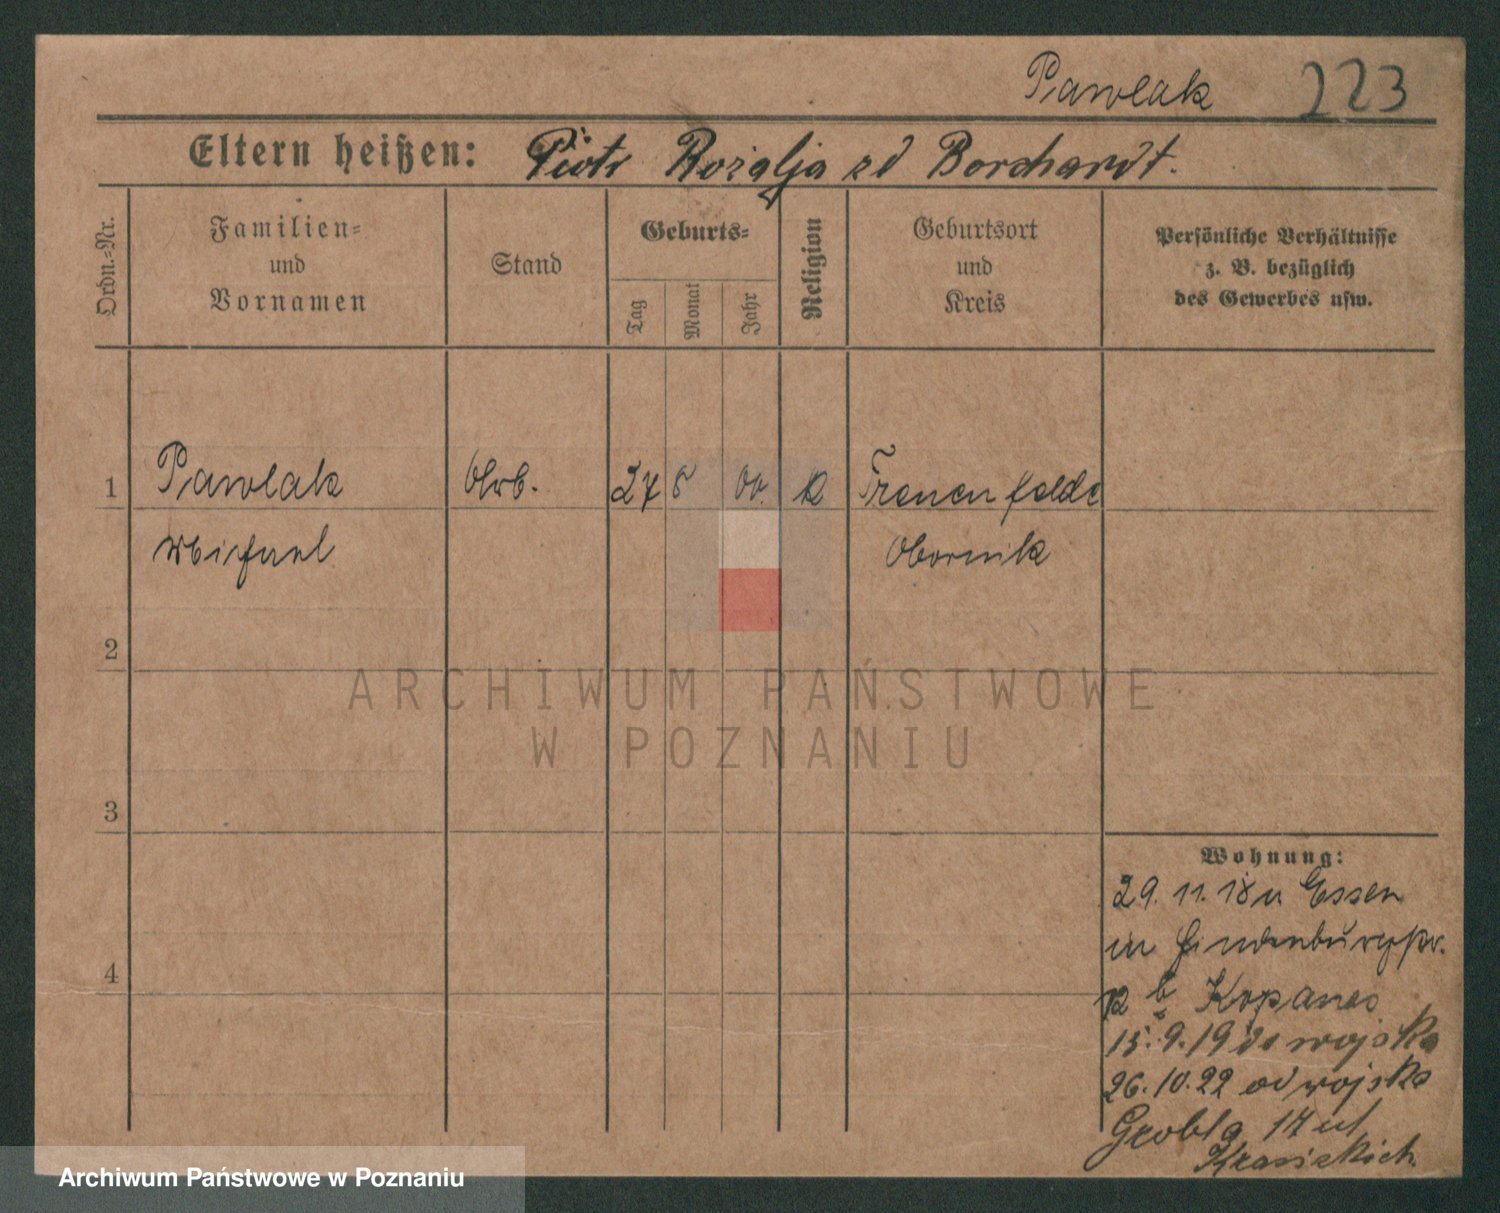 Pawlak 223
Eltern heißen: Piotr Rozalja zd Borchardt.
Ordn.-Nr.
Familien-
und
Vornamen
Stand
Geburts-
Tag
Monat
Jahr
Religion
Geburtsort
und
Kreis
Persönliche Verhältnisse
z. B. bezüglich
des Gewerbes usw.
1 Pawlak Arb. 27 8 00. K Frauenfelde
Michael Obornik
2
3
4
Wohnung:
29. 11. 18 v Essen
in Hindenburgstr.
b Kopanec
15. 9. 19 do wojska
26. 10. 22 od wojska
Grobla 17 ul
ARCHIWUM PAŃSTWOWE
W POZNANIU
Archiwum Państwowe w Poznaniu